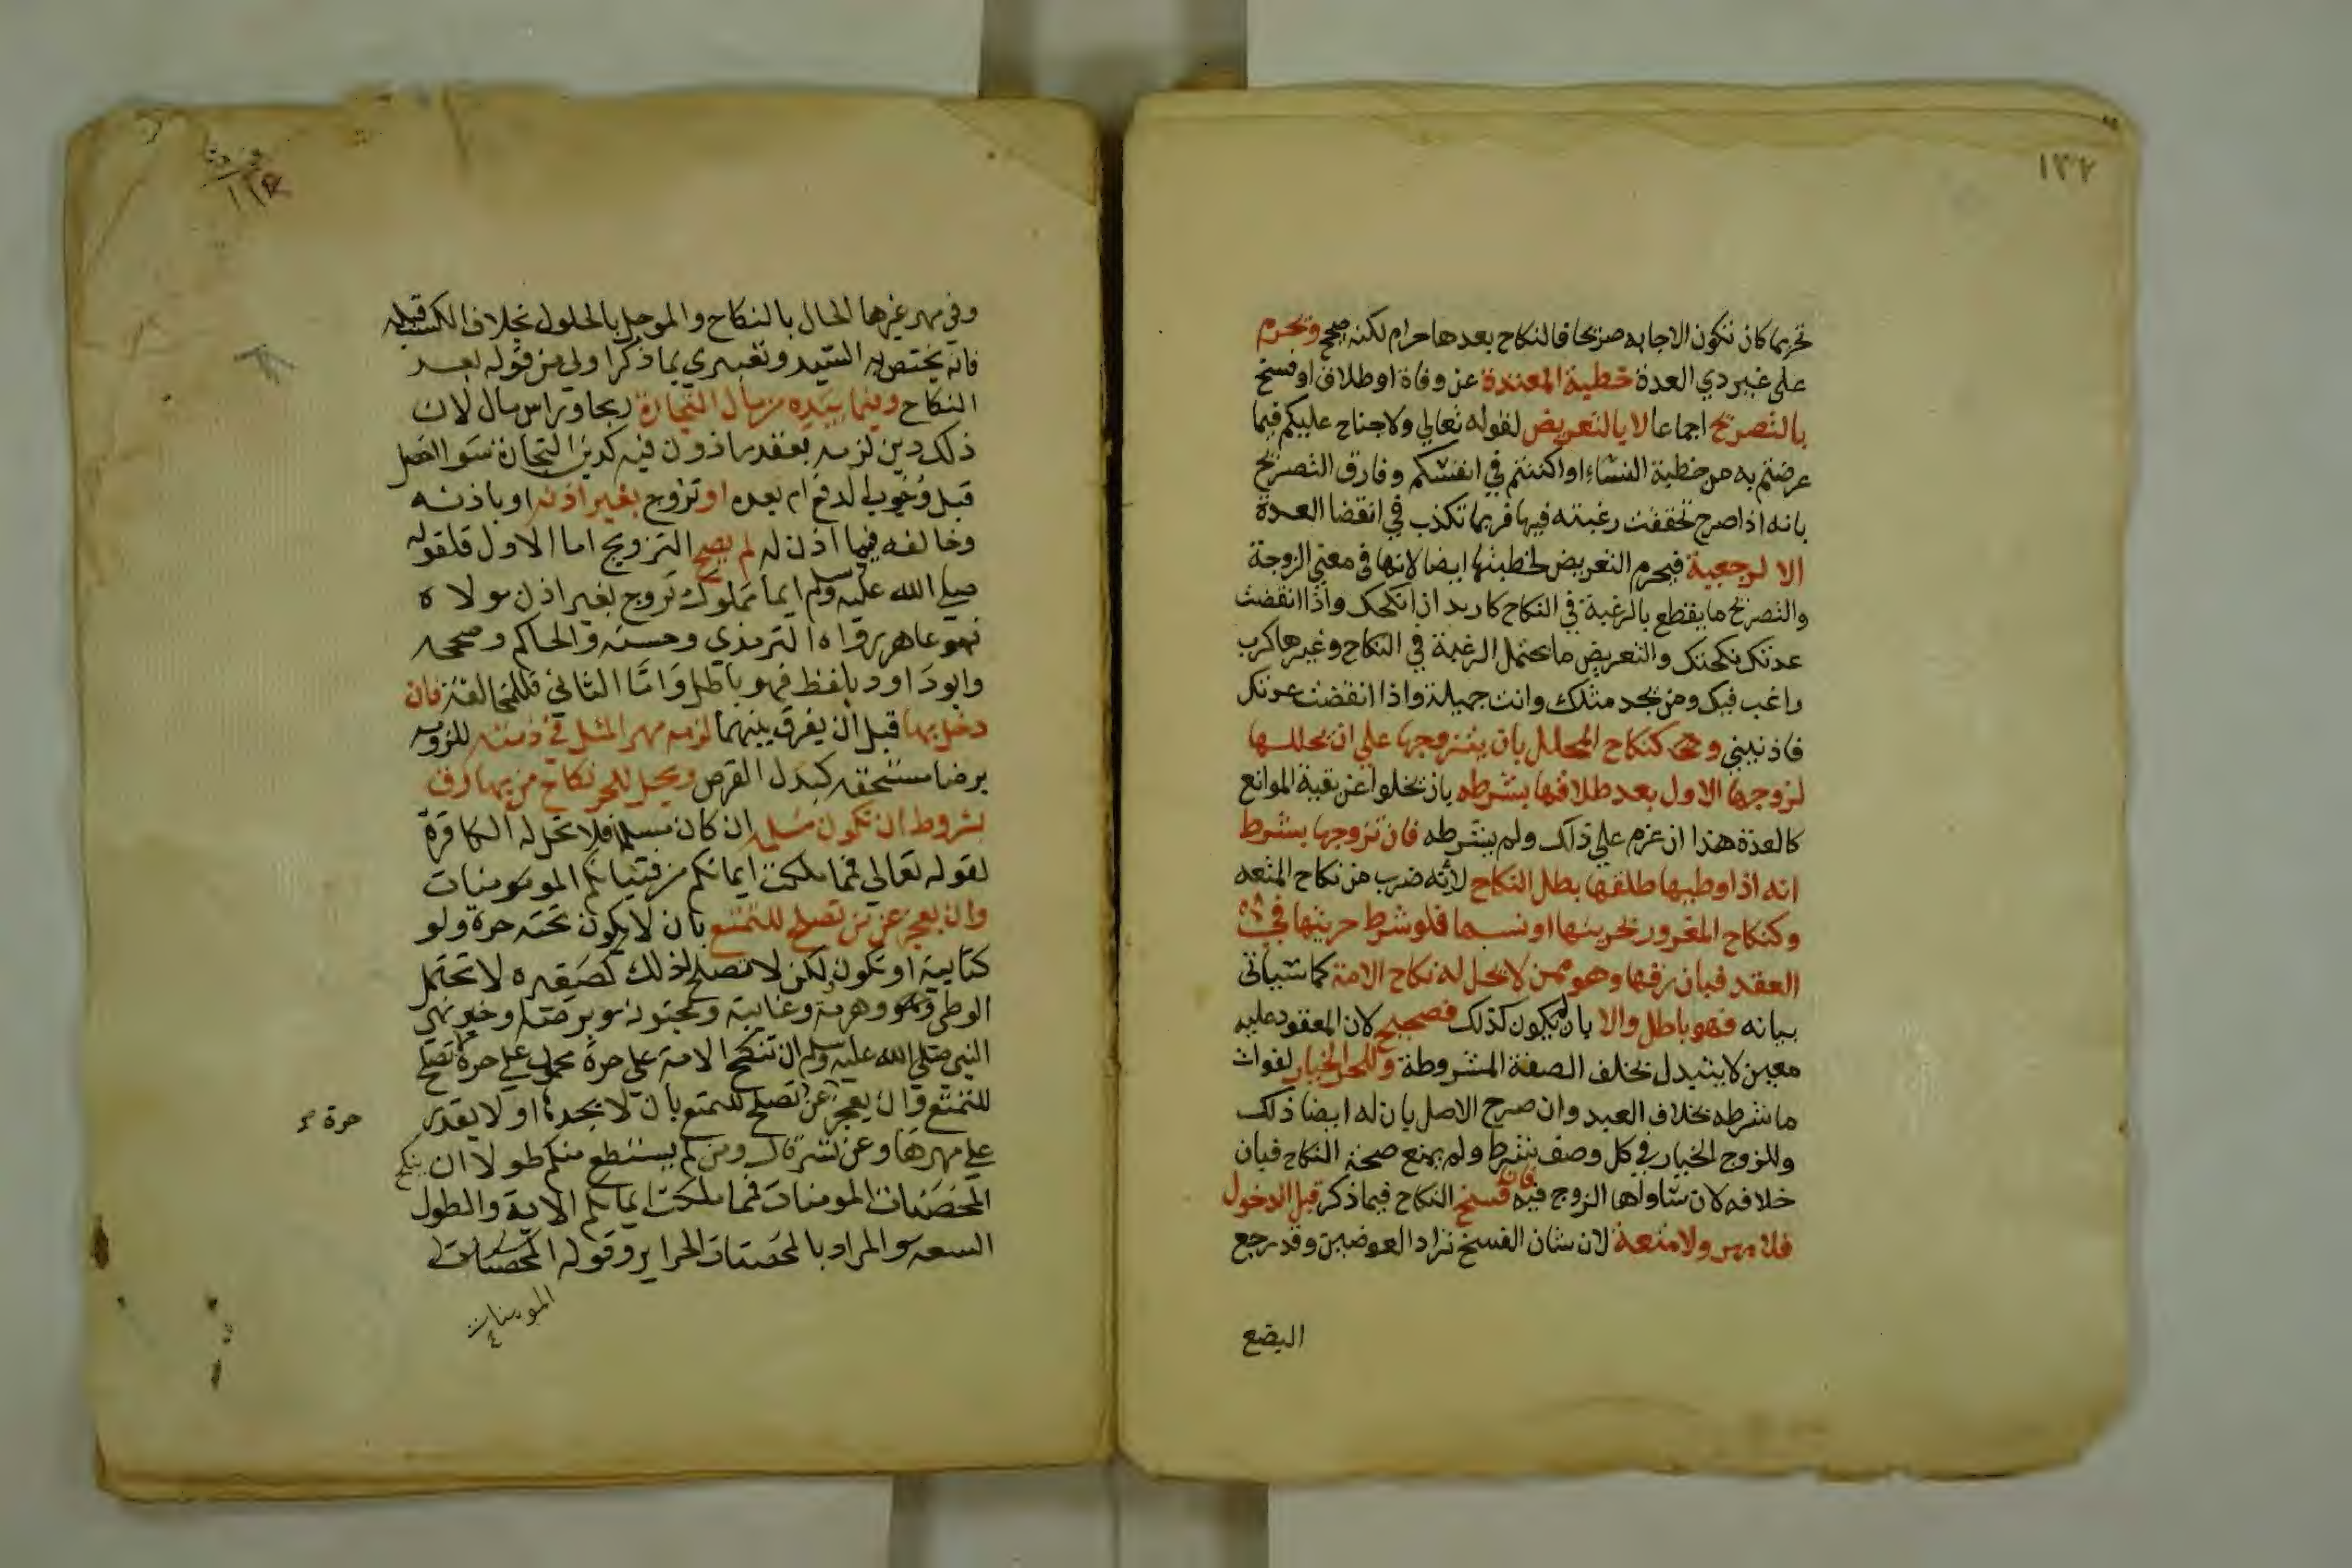 ١٣٧
تحريما كان تكون الاجابه صريحا فالنكاح بعدها حرام لكنه صحيح وتحرم
علي غير ذي العدة خطبة المعتدة عن وفاة او طلاق او فسخ
بالتصريح اجماعا لا بالتعريض لقوله تعالي ولا جناح عليكم فيما
عرضتم به من خطبة النساء او اكننتم في انفسكم وفارق التصريح
بانه اذا صرح تحققت رغبته فيها فربما تكذب في انقضا العدة
الا لرجعية فيحرم التعريض لخطبتها ايضا لانها في معني الزوجة
والتصريح ما يقطع بالرغبة في النكاح كاريد ان انكحك واذا انقضت
عدتك نكحتك والتعريض ما يحتمل الرغبة في النكاح وغيرها كرب
راغب فيك ومن يجد مثلك وانت جميلة واذا انقضت عدتك
فاذنيني وكنكاح المحلل بان يتزوجها علي ان يحللها
لزوجها الاول بعد طلاقها بشرطه بان تخلوا عن بقية الموانع
كالعدة هذا ان عزم علي ذلك ولم يشرطه فان تزوجها بشرط
انه اذا وطيها طلقها بطل النكاح لانه ضرب من نكاح المتعه
وكنكاح المغرور بحريتها او نسبها فلو شرط حريتها في
العقد فبان رقها وهو ممن لا يحل له نكاح الامة كما سياتي
بيانه فهو باطل والا بان لم يكون كذلك فصحيح لان المعقود عليه
معين لا يتبدل بخلف الصفة المشروطة وللحر الخيار لفوات
ما شرطه بخلاف العبد وان صرح الاصل بان له ايضا ذلك
وللزوج الخيار في كل وصف شرط ولم يمنع صحة النكاح فبان
خلافه لا ان ساواها الزوج فيه فان فسخ النكاح فيما ذكر قبل الدخول
فلا مهر ولا متعة لان شان الفسخ تراد العوضين وقد رجع
البضع
وفي مهر غيرها الحال بالنكاح والموجل بالحلول بخلاف الكسب قبله
فانه يختص به السيد وتعبيري بما ذكر اولي من قوله بعد
النكاح وفيما بيده من مال التجارة ربحا وراس مال لان
ذلك دين لزمه بعقد ماذون فيه كدين التجارة سوا الحصل
قبل وجوب الدفع ام بعده او تزوج بغير اذنه او باذنه
وخالفه فيما اذن له لم يصح التزويج اما الاول فلقوله
صلي الله عليه وسلم ايما مملوك تزوج بغير اذن مولاه
فهو عاهر رواه الترمذي وحسنه والحاكم وصححه
وابو داود بلفظ فهو باطل واما الثاني فللمخالفة فان
دخل بها قبل ان يفرق بينهما لزمه مهر المثل في ذمته للزومه
برضا مستحقه كبدل القرض ويحل للحر نكاح من بها رق
بشروط ان تكون مسلمه ان كان مسلما فلا تحل له الكافرة
لقوله تعالي فمما ملكت ايمانكم من فتياتكم المومنات
وان يعجز عن من تصلح للتمتع بان لا يكون تحته حرة ولو
كتابية او تكون لكن لا تصلح لذلك كصغيره لا تحتمل
الوطي وهرمة وغايبة ومجنونة وبرصا وخبر نهي
النبي صلي الله عليه وسلم ان تنكح الامة علي حرة محمول علي حرة تصلح
للتمتع وان يعجز عن تصلح للتمتع بان لا يجدها او لا يقدر
حرة
علي مهرها وعن تسر قال ومن لم يستطع منكم طولا ان ينكح
المحصنات المومنات فمما ملكت ايمانكم الاية والطول
السعه والمراد بالمحصنات الحراير وقوله المحصنات
المومنات